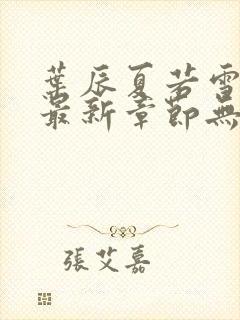 葉辰夏若雪
最新章節無
張艾嘉